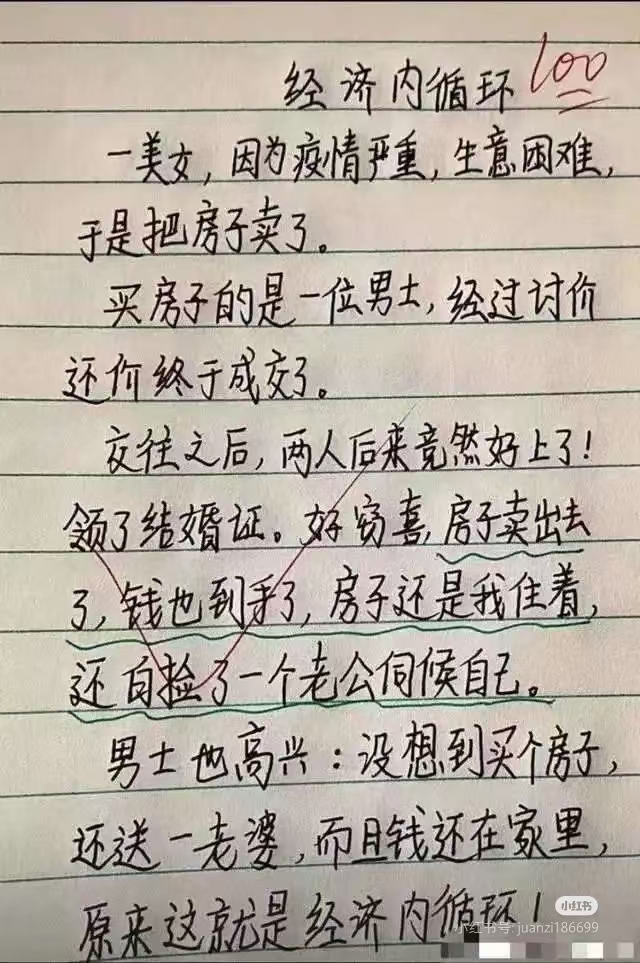 经济内循环 100
一美女，因为疫情严重，生意困难，
于是把房子卖了。
买房子的是一位男士，经过讨价
还价终于成交了。
交往之后，两人后来竟然好上了！
领了结婚证。好窃喜，房子卖出去
了，钱也到手了，房子还是我住着，
还白捡了一个老公伺候自己。
男士也高兴：没想到买个房子，
还送一老婆，而且钱还在家里，
原来这就是经济内循环！
小红书
小红书号：juanzi186699